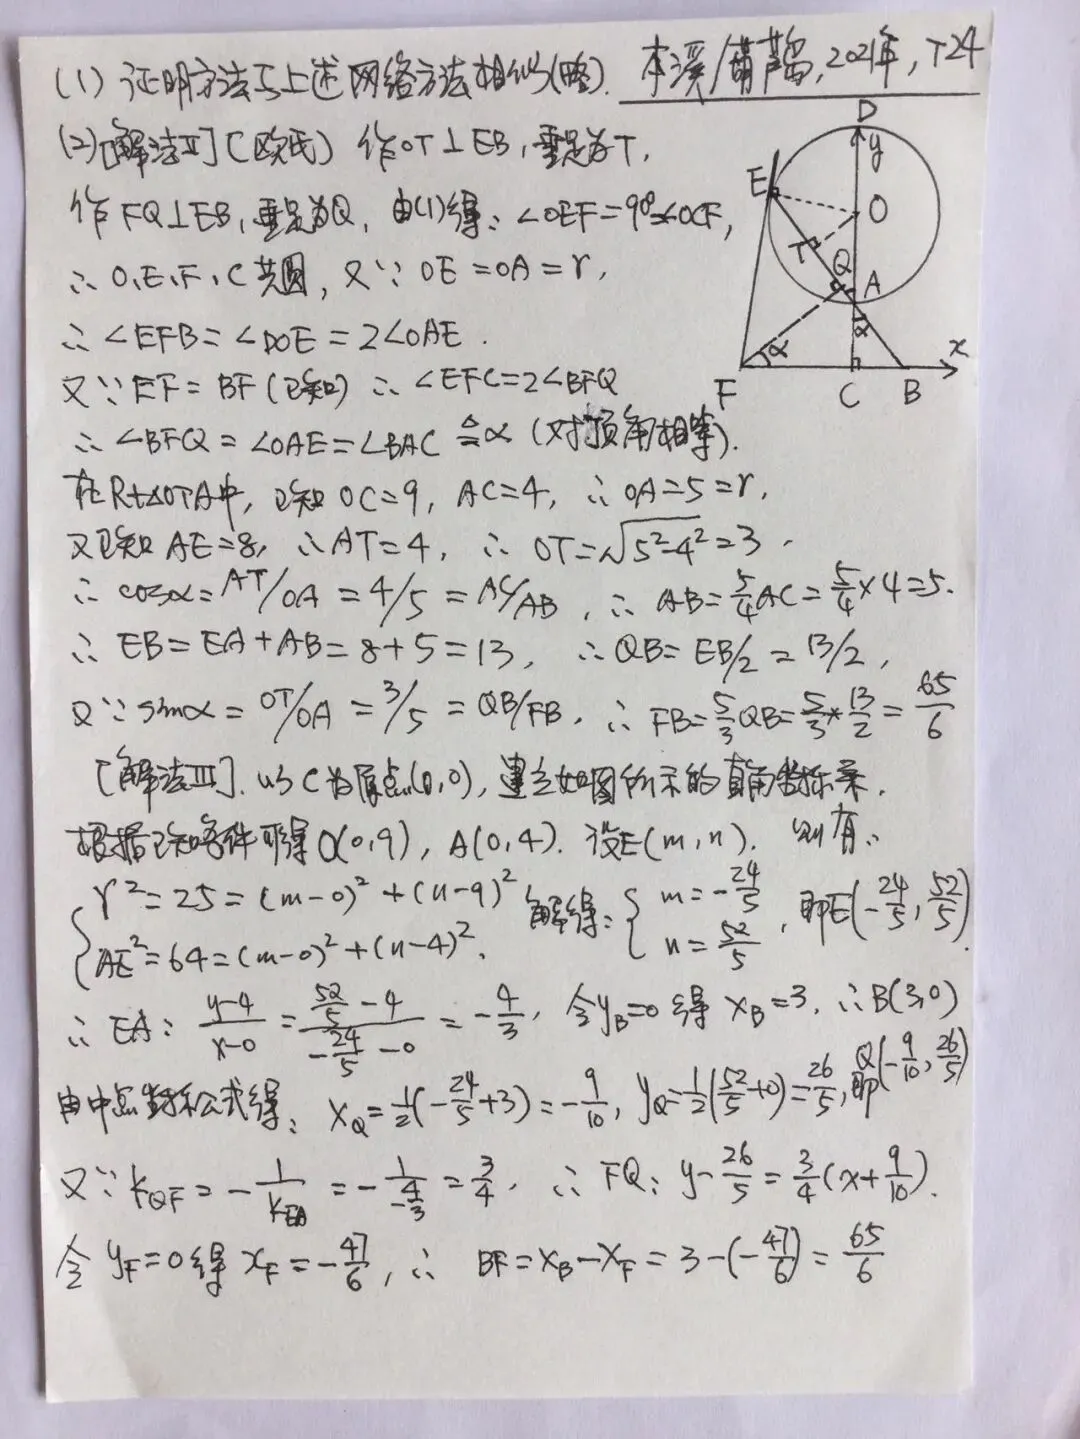 (1) 证明方法与上述网络方法相似(略). 本溪/葫芦岛, 2021年, T24
(2) [解法Ⅱ] (欧氏) 作OT⊥EB, 垂足为T,
作FQ⊥EB, 垂足为Q, 由(1)得: ∠OEF=90°=∠OCF,
∴ O、E、F、C共圆, 又∵ OE=OA=r,
∴ ∠EFB=∠DOE=2∠OAE.
又∵ EF=BF (已知) ∴ ∠EFC=2∠BFQ
∴ ∠BFQ=∠OAE=∠BAC≜α (对顶角相等).
在Rt△OTA中, 已知OC=9, AC=4, ∴ OA=5=r,
又已知AE=8, ∴ AT=4, ∴ OT=√(5²-4²)=3,
∴ cosα=AT/OA=4/5=AC/AB, ∴ AB=5/4AC=5/4×4=5.
∴ EB=EA+AB=8+5=13, ∴ QB=EB/2=13/2,
又∵ sinα=OT/OA=3/5=QB/FB, ∴ FB=5/3QB=5/3*13/2=65/6
[解法Ⅲ]. 以C为原点(0,0), 建立如图所示的直角坐标系.
根据已知条件可得O(0,9), A(0,4). 设E(m,n). 则有:
{r²=25=(m-0)²+(n-9)² 解得: {m=-24/5
AE²=64=(m-0)²+(n-4)². n=52/5, 即E(-24/5, 52/5)
∴ EA: (y-4)/(x-0)=(52/5-4)/(-24/5-0)=-4/3, 令yB=0得xB=3, ∴ B(3,0)
由中点坐标公式得: xQ=1/2(-24/5+3)=-9/10, yQ=1/2(52/5+0)=26/5, 即Q(-9/10, 26/5)
又∵ kQF=-1/kEA=-1/(-4/3)=3/4, ∴ FQ: y-26/5=3/4(x+9/10).
令yF=0得xF=-47/6, ∴ BF=xB-xF=3-(-47/6)=65/6
D
y
E
O
T
Q
A
α
α
x
F
C
B